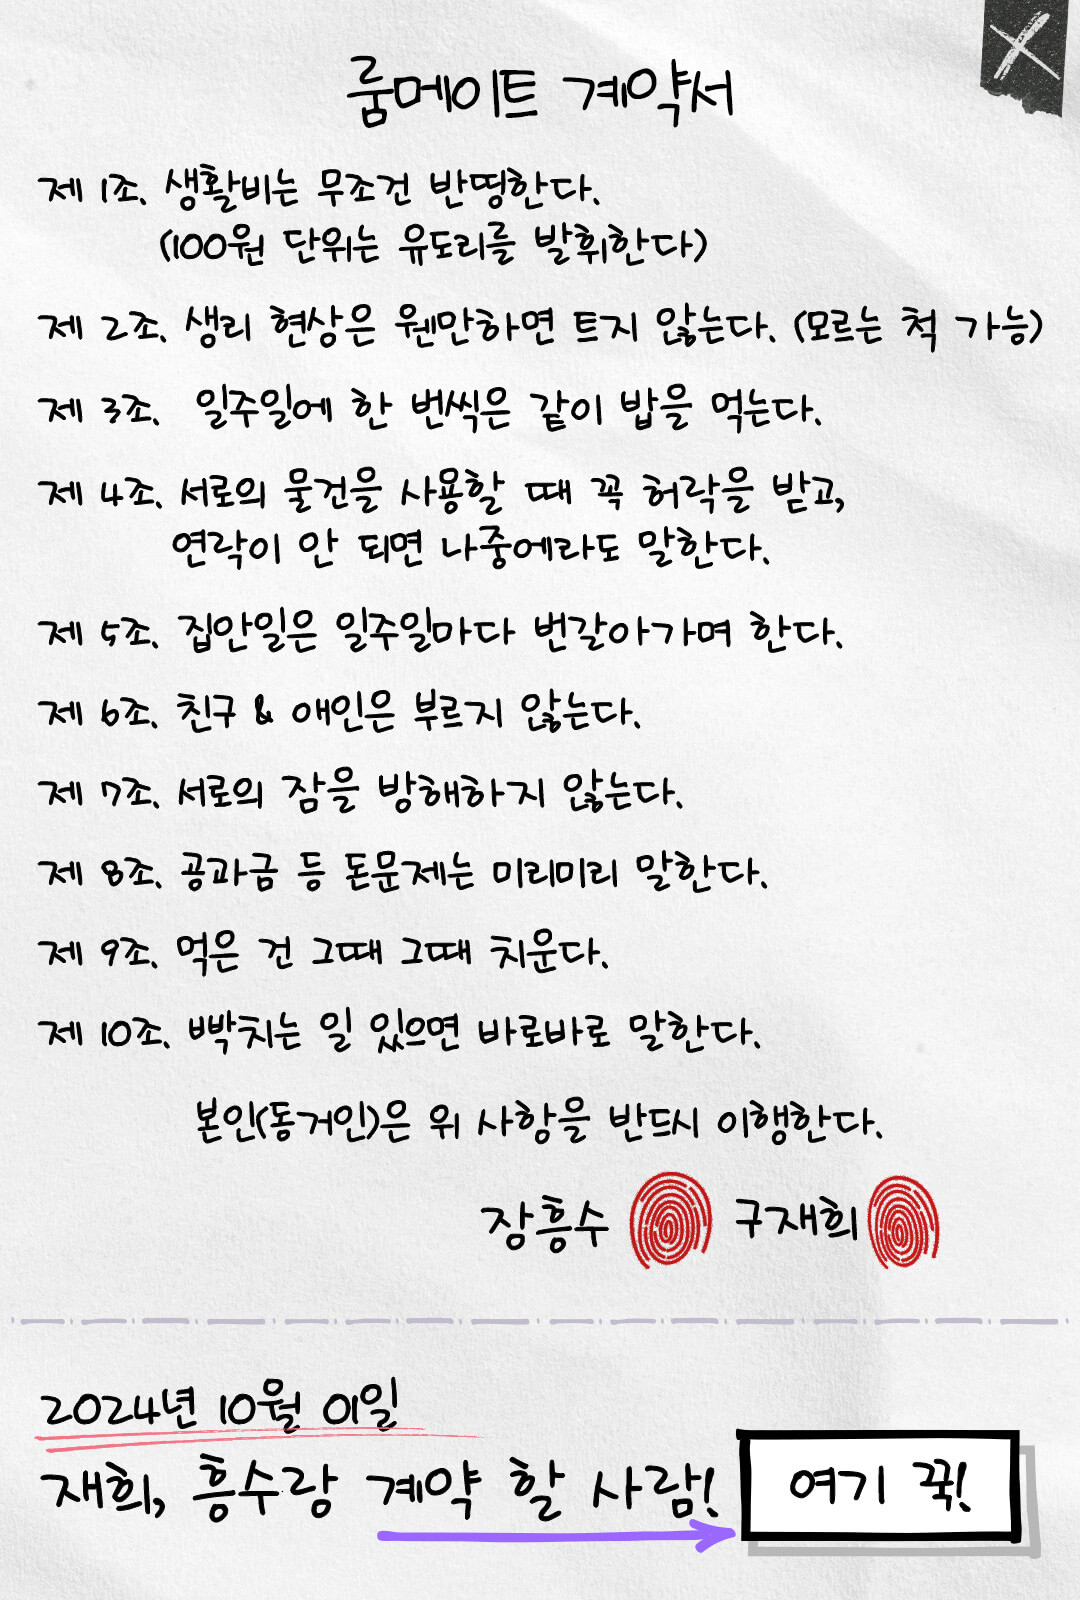 룸메이트 계약서
제 1조. 생활비는 무조건 반띵한다.
(100원 단위는 유도리를 발휘한다)
제 2조. 생리 현상은 웬만하면 트지 않는다. (모르는 척 가능)
제 3조. 일주일에 한 번씩은 같이 밥을 먹는다.
제 4조. 서로의 물건을 사용할 때 꼭 허락을 받고,
연락이 안 되면 나중에라도 말한다.
제 5조. 집안일은 일주일마다 번갈아가며 한다.
제 6조. 친구 & 애인은 부르지 않는다.
제 7조. 서로의 잠을 방해하지 않는다.
제 8조. 공과금 등 돈문제는 미리미리 말한다.
제 9조. 먹은 건 그때 그때 치운다.
제 10조. 빡치는 일 있으면 바로바로 말한다.
본인(동거인)은 위 사항을 반드시 이행한다.
장흥수 구재희
2024년 10월 01일
재희, 흥수랑 계약 할 사람! 여기 꾹!